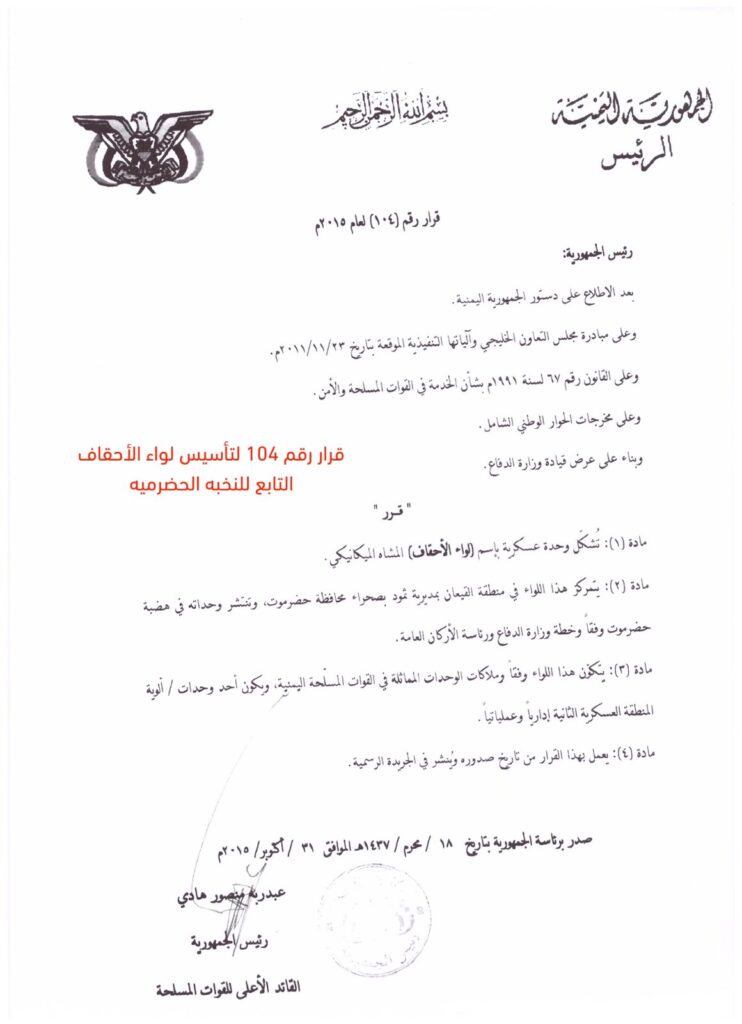 الجمهورية اليمنية
الرئيس
بسم الله الرحمن الرحيم
قرار رقم (١٠٤) لعام ٢٠١٥م
رئيس الجمهورية:
بعد الاطلاع على دستور الجمهورية اليمنية.
وعلى مبادرة مجلس التعاون الخليجي وآلياتها التنفيذية الموقعة بتاريخ ٢٠١١/١١/٢٣م.
وعلى القانون رقم ٦٧ لسنة ١٩٩١م بشأن الخدمة في القوات المسلحة والأمن.
وعلى مخرجات الحوار الوطني الشامل.
وبناء على عرض قيادة وزارة الدفاع.
قرار رقم 104 لتأسيس لواء الأحقاف
التابع للنخبه الحضرميه
" قـرر "
مادة (١): تُشكّل وحدة عسكرية بإسم (لواء الأحقاف) المشاه الميكانيكي.
مادة (٢): يتمركز هذا اللواء في منطقة القيعان بمديرية ثمود بصحراء محافظة حضرموت، وتنتشر وحداته في هضبة
حضرموت وفقاً وخطة وزارة الدفاع ورئاسة الأركان العامة.
مادة (٣): يتكوّن هذا اللواء وفقاً وملاكات الوحدات المماثلة في القوات المسلّحة اليمنية، ويكون أحد وحدات / ألوية
المنطقة العسكرية الثانية إدارياً وعملياتياً.
مادة (٤): يعمل بهذا القرار من تاريخ صدوره ويُنشر في الجريدة الرسمية.
صدر برئاسة الجمهورية بتاريخ ١٨ / محرم / ١٤٣٧هـ الموافق ٣١ / أكتوبر/ ٢٠١٥م
عبدربه منصور هادي
رئيس الجمهورية
القائد الأعلى للقوات المسلحة